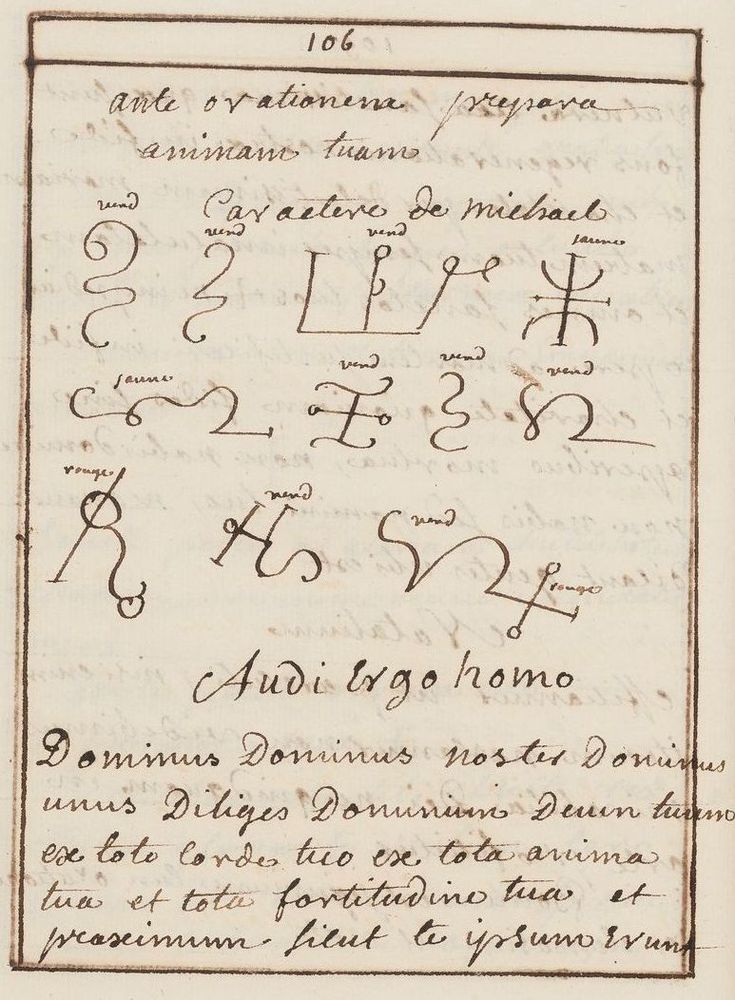 106
ante orationena prepara
animam tuam
Caractere de michael
verd
verd
verd
jaune
jaune
verd
verd
verd
rouge
verd
verd
rouge
Audi Ergo homo
Dominus Dominus noster Dominus
unus Diliges Dominum Deum tuum
ex toto Corde tuo ex tota anima
tua et tota fortitudine tua et
proximum sicut te ipsum Erunt